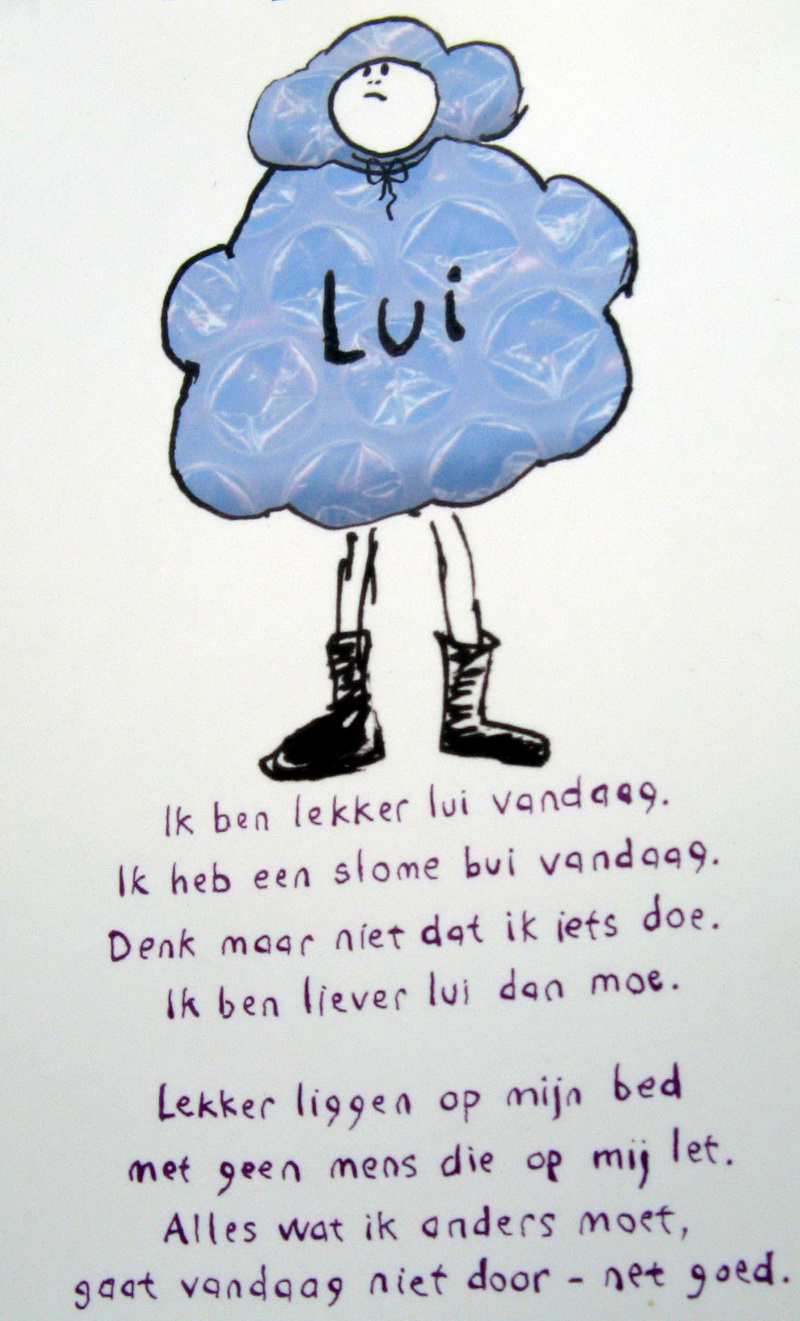 Lui
Ik ben lekker lui vandaag.
Ik heb een slome bui vandaag.
Denk maar niet dat ik iets doe.
Ik ben liever lui dan moe.
Lekker liggen op mijn bed
met geen mens die op mij let.
Alles wat ik anders moet,
gaat vandaag niet door - net goed.